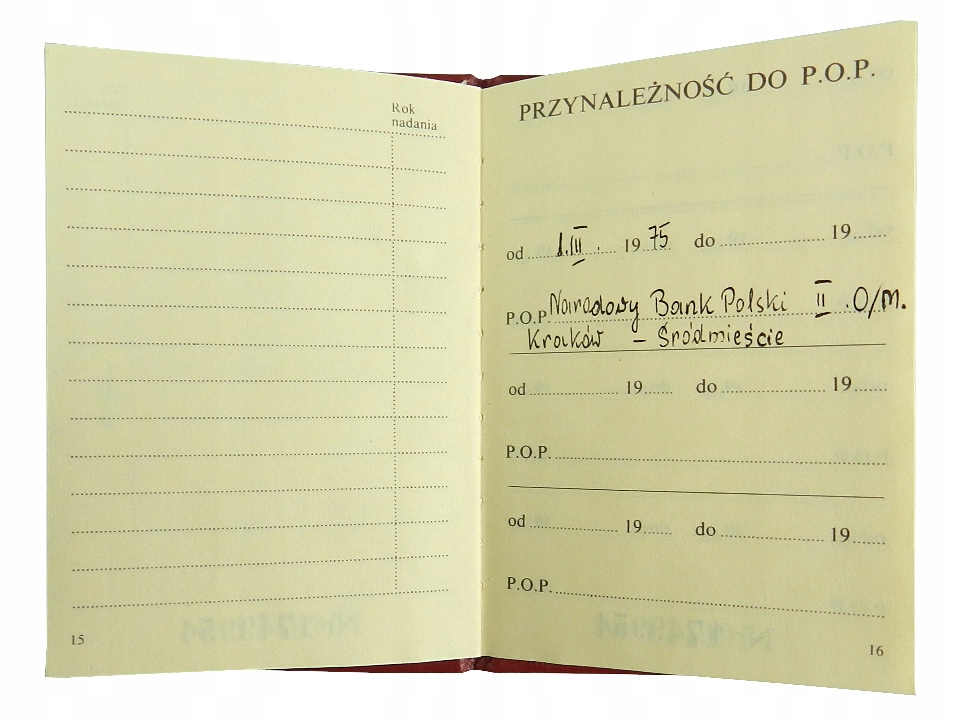 Rok
nadania
15
PRZYNALEŻNOŚĆ DO P.O.P.
od 1.III. 1975 do 19
P.O.P. Narodowy Bank Polski II .O/M.
Kraków – Śródmieście
od 19 do 19
P.O.P.
od 19 do 19
P.O.P.
16